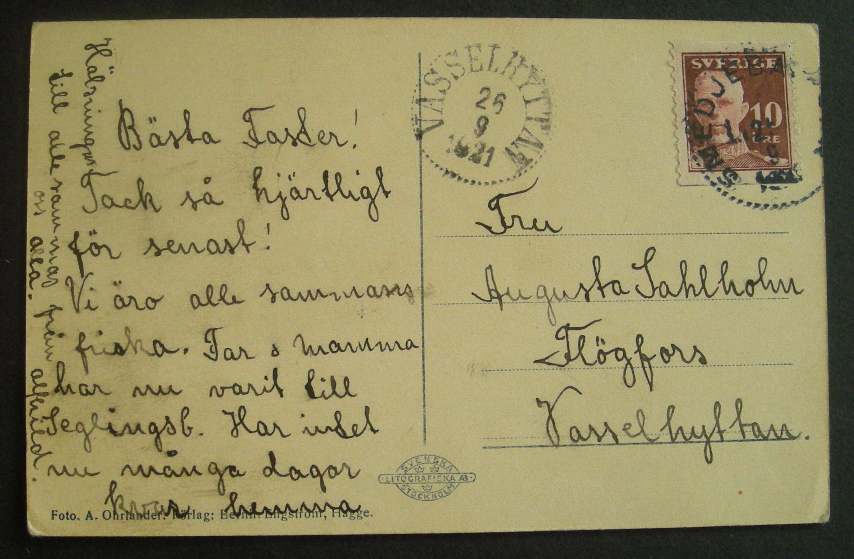 Bästa Faster!
Tack så hjärtligt
för senast!
Vi äro alle sammans
friska. Far o Mamma
har nu varit till
Seglingsb. Har intet
nu många dagar
kvar hemma
Hälsningar
till alle sammas från alfhild.
os alla.
VASSELHYTTAN
26
9
1921
SVERIGE
10
ÖRE
SMEDJEBACKEN
Fru
Augusta Sahlholm
Flögfors
Vasselhyttan.
SVENSKA
LITOGRAFISKA AB
STOCKHOLM
Foto. A. Ohrlander. Förlag: Engström, Hagge.